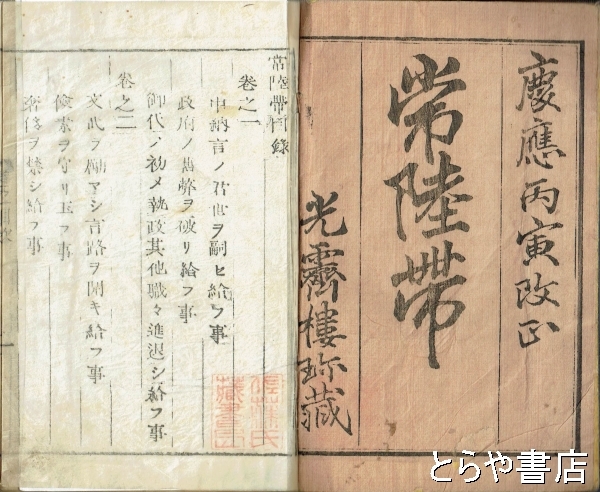 慶應丙寅改正
常陸帶
光霽樓珍藏
常陸帶目錄
卷之一
中納言ノ君世ヲ嗣ヒ給フ事
政府ノ舊弊ヲ破リ給フ事
御代ノ初メ執政其他職々進退シ給フ事
卷之二
文武ヲ勵マシ言路ヲ開キ給フ事
儉素ヲ守リ玉フ事
奢侈ヲ禁シ給フ事
藏書
とらや書店